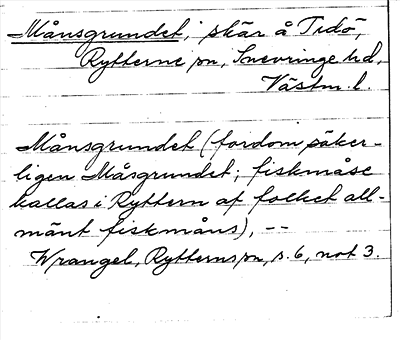 Månsgrundet, skär å Tidö,
Rytterne sn, Snevringe hd,
Västm. l.
Månsgrundet (fordom säker-
ligen Måsgrundet; fiskmåse
kallas i Ryttern af folket all-
mänt fiskmåns), --
Wrangel, Rytterns sn, s. 6, not 3.